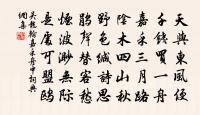 天與東風便
千錢買一舟
嘉禾三月路
陰木四山秋
野色緘詩思
鵑聲替客愁
煙波渺無際
是處可盟鷗
吳龍翰嘉禾舟中詞典
網集